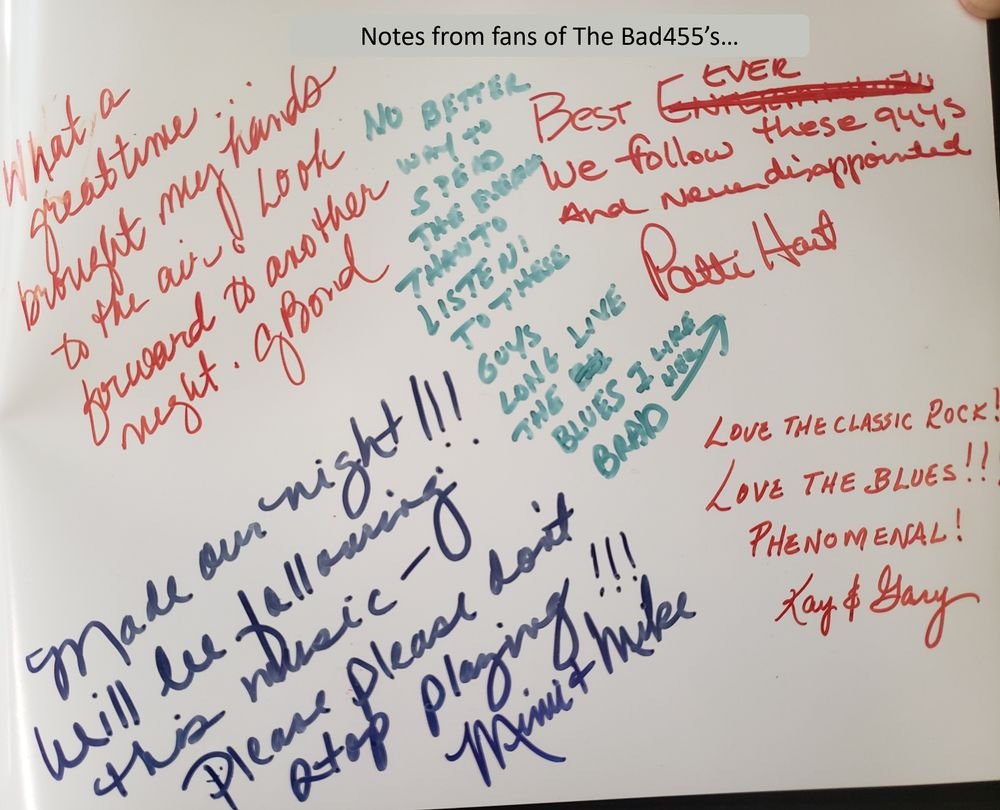 Notes from fans of The Bad455's...
What a
great time.
brought my hands
to the air. Look
forward to another
night. G Bond
NO BETTER
WAY TO
SPEND
THE
THAN TO
LISTEN!
TO THESE
GUYS
LONG LIVE
THE
BLUES I LIKE
BRAD
EVER
BEST
these guys
We follow
And never disappointed
Patti Hart
Made our night!!!
Will be following
this music –
Please please don't
stop playing!!!
Mimi + Mike
LOVE THE CLASSIC ROCK!
LOVE THE BLUES!!
PHENOMENAL!
Kay & Gary